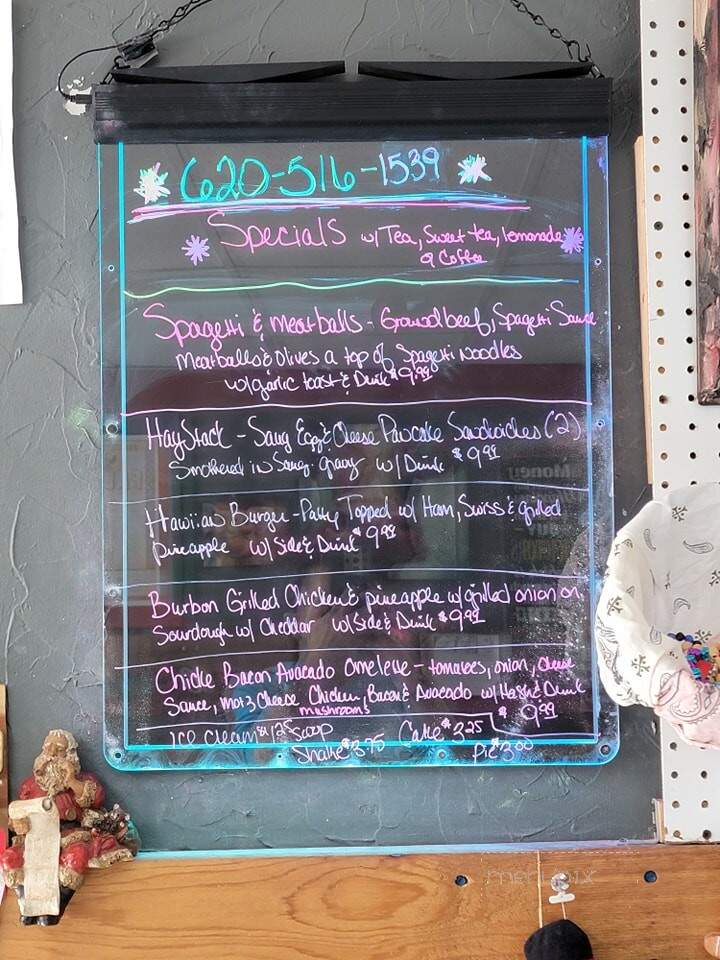 620-516-1539
Specials w/ Tea, Sweet tea, lemonade
& Coffee
Spagetti & meatballs - Ground beef, Spagetti Sauce
meatballs & olives a top of Spagetti noodles
w/ garlic toast & Drink $9.99
HayStack - Saug Egg & Cheese Pancake Sandwiches (2)
Smothered in Saug. gravy w/ Drink $9.99
Hawiian Burger - Patty Topped w/ Ham, Swiss & grilled
pineapple w/ Side & Drink $9.99
Burbon Grilled Chicken & pineapple w/ grilled onion on
Sourdough w/ Cheddar w/ Side & Drink $9.99
Chicke Bacon Avacado omeleve - tomatoes, onion, cheese
Sauce, Motz Cheese Chicken, Bacon & Avocado w/ Hash & Drink
mushrooms $9.99
Ice cream $1.25 scoop Cake $3.25
Shake $3.75 Pie $3.00
Money
menupix